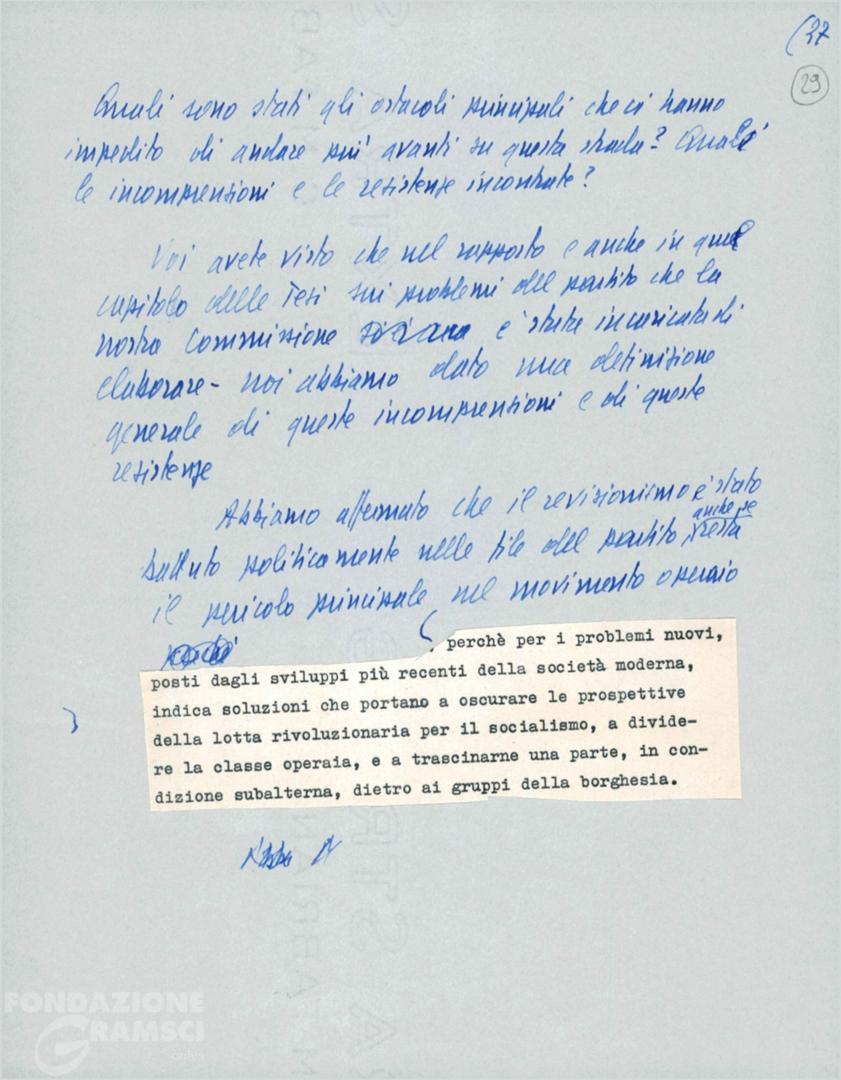 (27
29
Quali sono stati gli ostacoli principali che ci hanno
impedito di andare più avanti su questa strada? Quali
le incomprensioni e le resistenze incontrate?
Voi avete visto che nel rapporto e anche in quel
capitolo delle Tesi sui problemi del partito che la
nostra Commissione è stata incaricata di
elaborare - noi abbiamo dato una definizione
generale di queste incomprensioni e di queste
resistenze
Abbiamo affermato che il revisionismo è stato
battuto politicamente nelle file del partito, anche se resta
il pericolo principale nel movimento operaio
, perchè per i problemi nuovi,
posti dagli sviluppi più recenti della società moderna,
indica soluzioni che portano a oscurare le prospettive
della lotta rivoluzionaria per il socialismo, a divide-
re la classe operaia, e a trascinarne una parte, in con-
dizione subalterna, dietro ai gruppi della borghesia.
FONDAZIONE
GRAMSCI
onlus